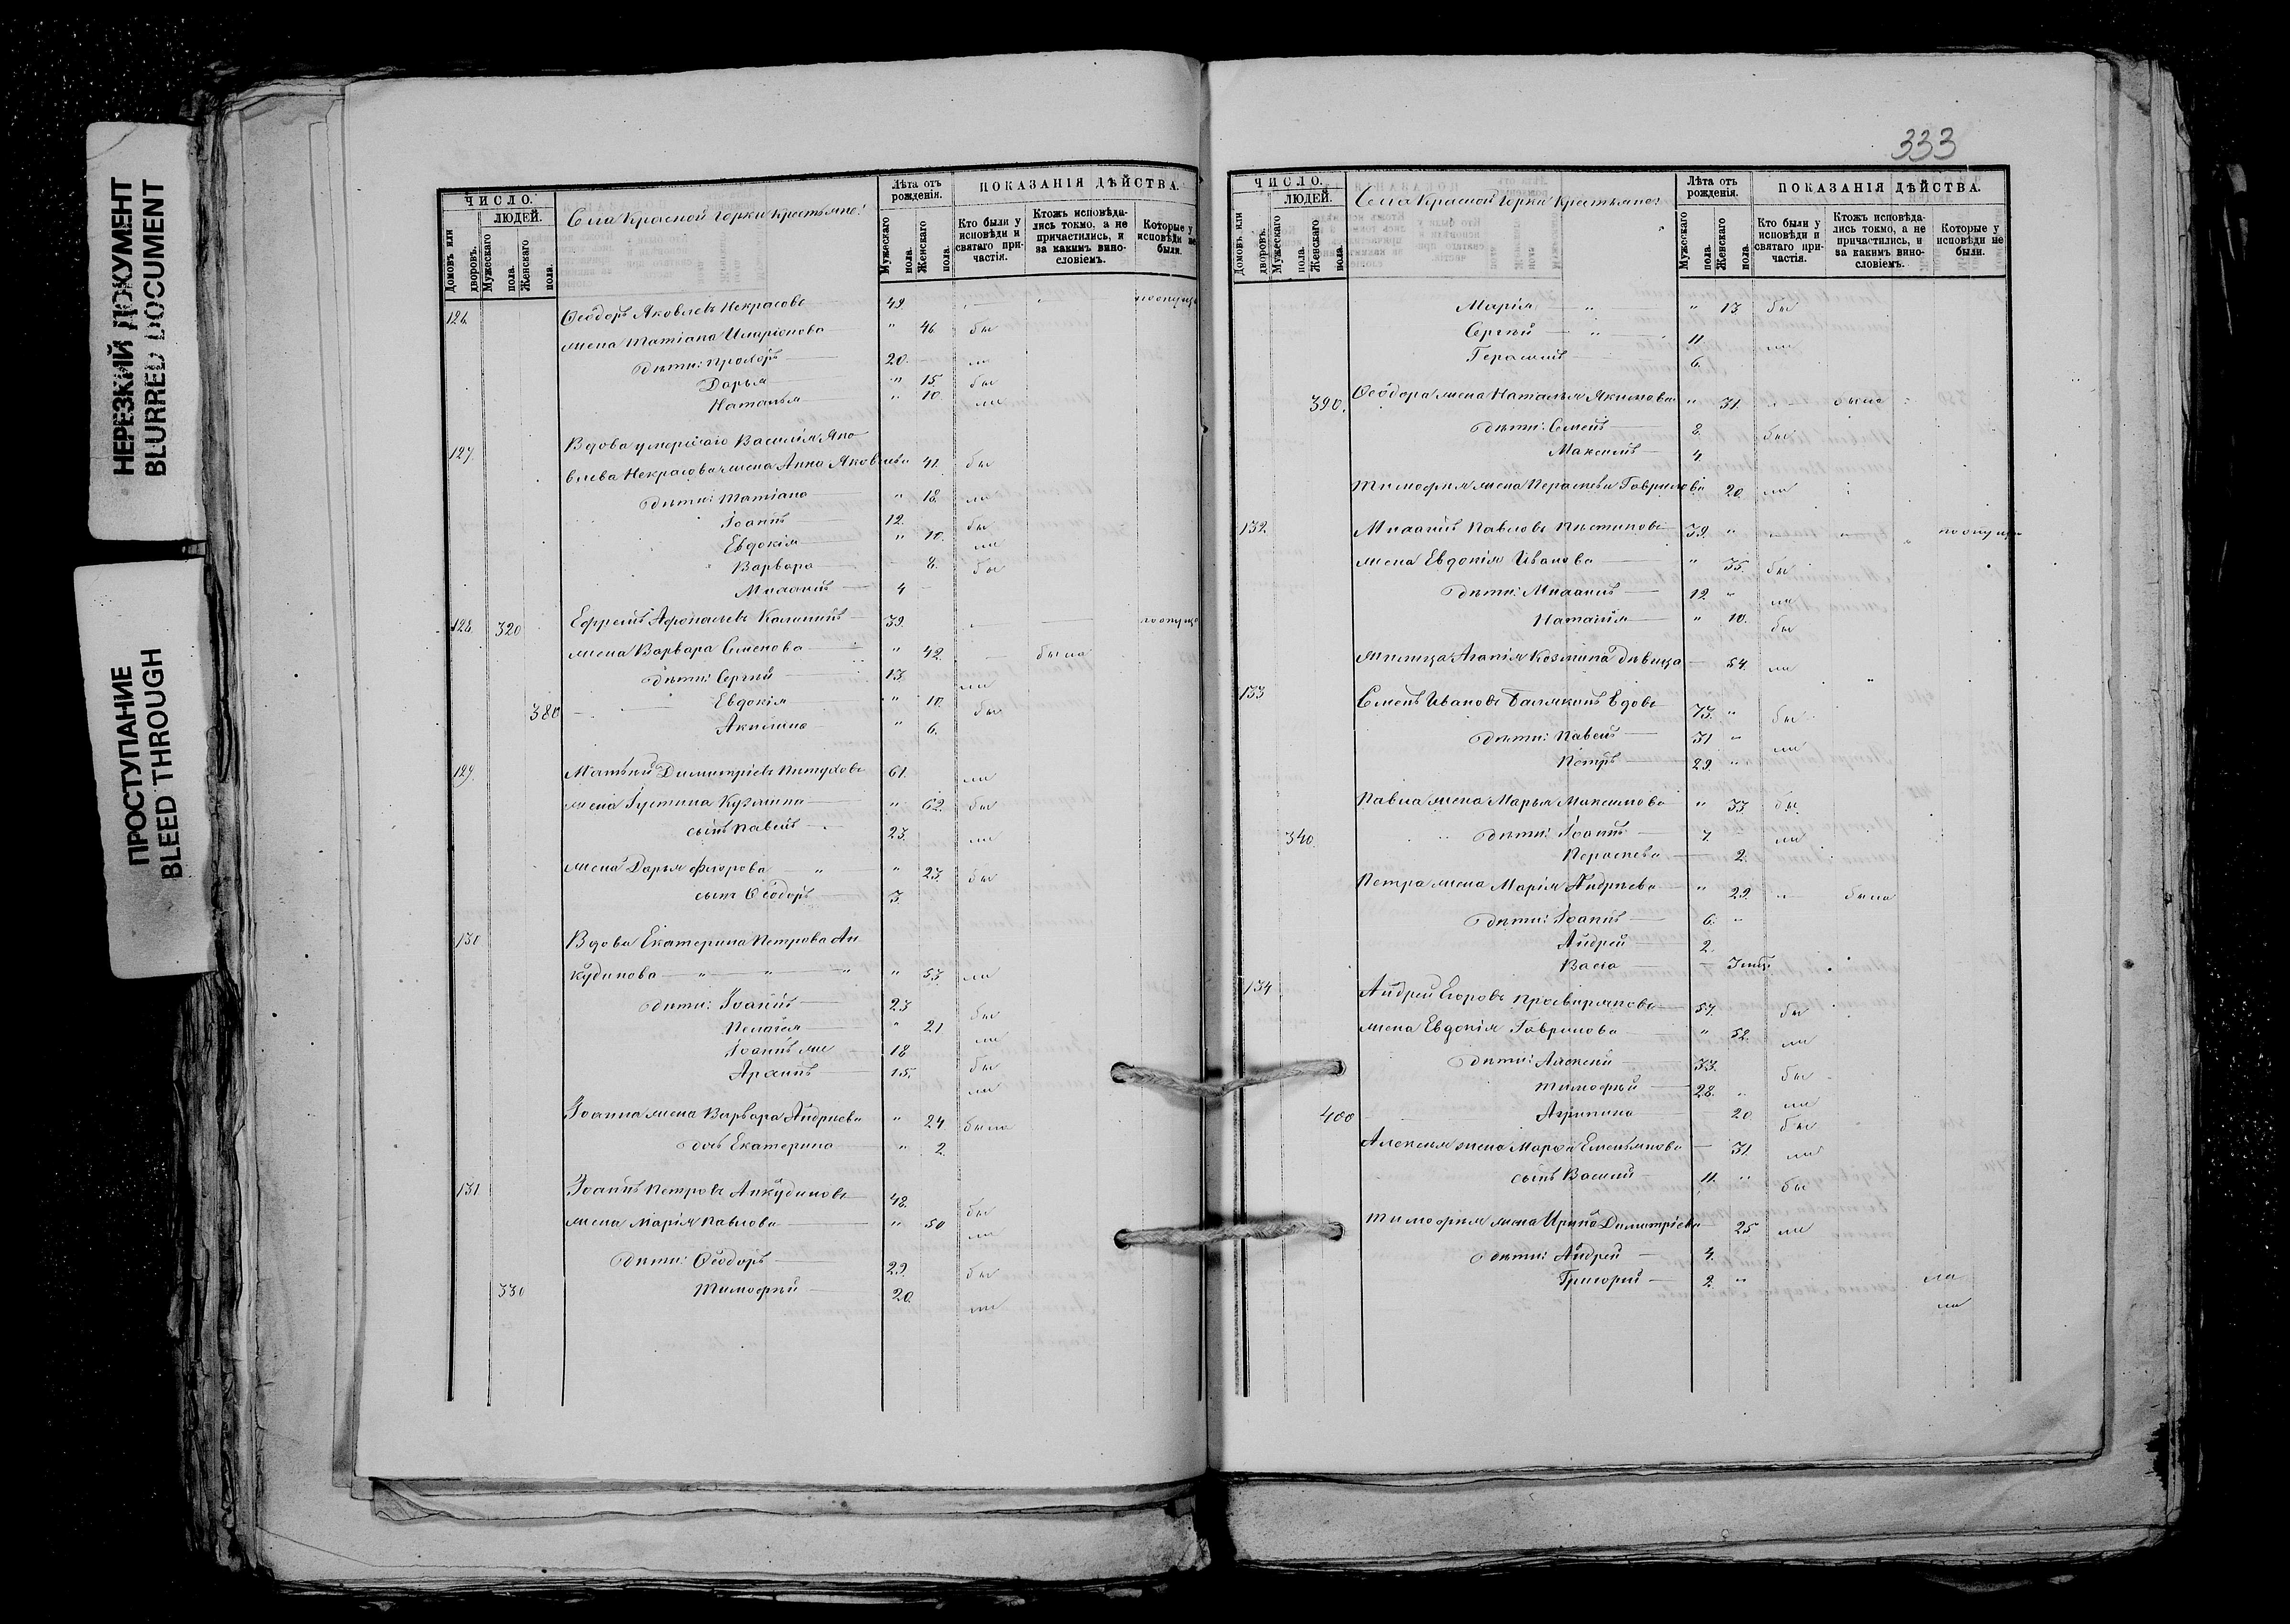 НЕРЕЗКИЙ ДОКУМЕНТ
BLURRED DOCUMENT
ПРОСТУПАНИЕ
BLEED THROUGH
ЧИСЛО.
ЛЮДЕЙ.
Домовъ или дворовъ.
Мужескаго пола.
Женскаго пола.
Села Красной Горки крестьяне:
Лѣта отъ рожденія.
Мужескаго пола.
Женскаго пола.
ПОКАЗАНІЯ ДѢЙСТВА.
Кто были у исповѣди и святаго при-частія.
Ктожъ исповѣда-лись токмо, а не причастились, и за какимъ вино-словіемъ.
Которые у исповѣди не были.
126 Ѳеодоръ Яковлевъ Некрасовъ 49. по опущ
жена Татіана Иларіонова " 46 бы
дѣти: Прохоръ 20. ли
Дарья " 15 бы
Наталья " 10 ли
127. Вдова умершаго Василія Яко
влева Некрасова жена Анна Яковлева 41. бы
дѣти: Татіана " 18 ли
Іоаннъ 12. бы
Евдокія " 10. ли
Варвара 8. бы
Михаилъ 4
128. 320 Ефремъ Афонасьевъ Калининъ 39. по опущ
жена Варвара Семенова " 42. была
дѣти: Сергѣй 13. ли
380 Евдокія " 10 бы
Акилина " 6.
129. Матвѣй Димитріевъ Пѣтуховъ 61. ли
жена Іустина Кузмина " 62. бы
сынъ Павелъ 23. ли
жена Дарья Флорова " " 23. бы
сынъ Ѳеодоръ 3.
130 Вдова Екатерина Петрова Ан
кудинова " " " " 53. ли
дѣти: Іоаннъ 23 бы
Пелагія " 21 ли
Іоаннъ же 18 бы
15. ли
Іоанна жена Варвара Андреева " 24 была
дочь Екатерина " 2.
131 Іоаннъ Петровъ Анкудиновъ 48. бы
жена Марія Павлова " 50 ли
дѣти: Ѳеодоръ 29. бы
330 Тимофей 20. ли
333
ЧИСЛО.
ЛЮДЕЙ.
Домовъ или дворовъ.
Мужескаго пола.
Женскаго пола.
Села Красной Горки крестьяне:
Лѣта отъ рожденія.
Мужескаго пола.
Женскаго пола.
ПОКАЗАНІЯ ДѢЙСТВА.
Кто были у исповѣди и святаго при-частія.
Ктожъ исповѣда-лись токмо, а не причастились, и за какимъ вино-словіемъ.
Которые у исповѣди не были.
Марія " " 13 бы
Сергѣй " 11 ли
Герасимъ 6.
390. Ѳеодора жена Наталья Якимова " 31. " была
дѣти: Семенъ 8. бы
Максимъ 4.
Тимофея жена Параскева Гаврилова 20. ли
132. Михаилъ Павловъ 39. " " " по опущ
жена Евдокія Иванова " 35. бы
дѣти: Михаилъ 12. " ли
Наталія " 10. бы
Агапія Козмина дѣвица 54. ли
133 Семенъ Ивановъ вдовъ 73. " бы
дѣти: Павелъ 31 " ли
Петръ 29. "
Павла жена Марья Максимова " 33 бы
340. дѣти: Іоаннъ 7. ли
Параскева 2.
Петра жена Марія Андреева " 29. " была
дѣти: Іоаннъ 6. "
Андрей 2.
134 Андрей Егоровъ Просвиряковъ 57. бы
жена Евдокія Гаврилова " 58. ли
дѣти: Алексѣй 33. бы
Тимофѣй 28. " ли
400 Агрипина 20. бы
Алексѣя жена Марфа Емельянова 31. ли
сынъ Василій 11. " бы
Тимофея жена Ирина Димитріева 25 ли
дѣти: Андрей 4.
Григорій 2. " ли
ли